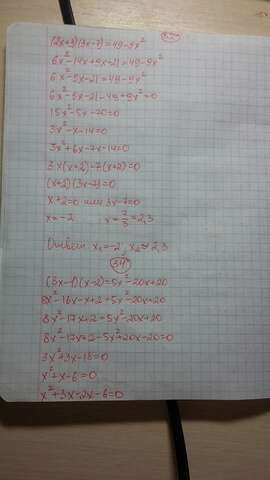 (2x+3)(3x-7)=49-9x²
6x²-14x+9x-21=49-9x²
6x²-5x-21=49-9x²
6x²-5x-21-49+9x²=0
15x²-5x-70=0
3x²-x-14=0
3x²+6x-7x-14=0
3x(x+2)-7(x+2)=0
(x+2)(3x-7)=0
x+2=0 или 3x-7=0
x=-2 ; x=7/3≈2,3
Ответ: x₁=-2, x₂≈2,3
(8x-1)(x-2)=5x²-20x+20
8x²-16x-x+2=5x²-20x+20
8x²-17x+2=5x²-20x+20
8x²-17x+2-5x²+20x-20=0
3x²+3x-18=0
x²+x-6=0
x²+3x-2x-6=0